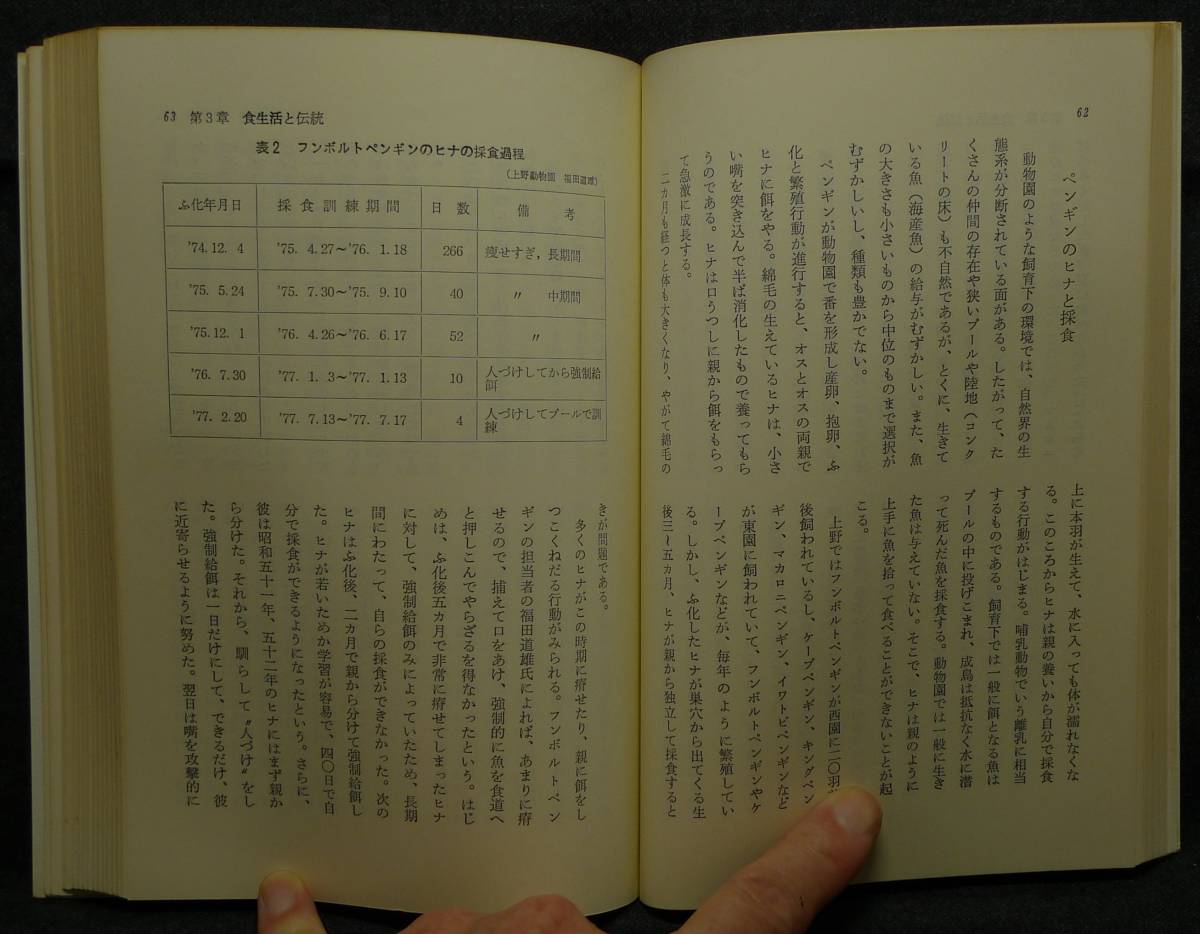 62
ペンギンのヒナと採食
動物園のような飼育下の環境では、自然界の生
態系が分断されている面がある。したがって、た
くさんの仲間の存在や狭いプールや陸地(コンク
リートの床)も不自然であるが、とくに、生きて
いる魚(海産魚)の給与がむずかしい。また、魚
の大きさも小さいものから中位のものまで選択が
むずかしいし、種類も豊かでない。
ペンギンが動物園で番を形成し産卵、抱卵、ふ
化と繁殖行動が進行すると、オスとオスの両親で
ヒナに餌をやる。綿毛の生えているヒナは、小さ
い嘴を突き込んで半ば消化したもので養ってもら
うのである。ヒナは口うつしに親から餌をもらっ
て急激に成長する。
二カ月も経つと体も大きくなり、やがて綿毛の
上に本羽が生えて、水に入っても体が濡れなくな
る。このころからヒナは親の養いから自分で採食
する行動がはじまる。哺乳動物でいう離乳に相当
するものである。飼育下では一般に餌となる魚は
プールの中に投げこまれ、成鳥は抵抗なく水に潜
って死んだ魚を採食する。動物園では一般に生き
た魚は与えていない。そこで、ヒナは親のように
上手に魚を拾って食べることができないことが起
こる。
上野ではフンボルトペンギンが西園に二〇羽
後飼われているし、ケープペンギン、キングペン
ギン、マカロニペンギン、イワトビペンギンなど
が東園に飼われていて、フンボルトペンギンやケ
ープペンギンなどが、毎年のように繁殖してい
る。しかし、ふ化したヒナが巣穴から出てくる生
後三〜五カ月、ヒナが親から独立して採食すると
63 第3章 食生活と伝統
表2 フンボルトペンギンのヒナの採食過程
(上野動物園 福田道雄)
ふ化年月日 採食訓練期間 日数 備考
'74.12. 4 '75. 4.27〜'76. 1.18 266 痩せすぎ,長期間
'75. 5.24 '75. 7.30〜'75. 9.10 40 〃 中期間
'75.12. 1 '76. 4.26〜'76. 6.17 52 〃
'76. 7.30 '77. 1. 3〜'77. 1.13 10 人づけしてから強制給
餌
'77. 2.20 '77. 7.13〜'77. 7.17 4 人づけしてプールで訓
練
きが問題である。
多くのヒナがこの時期に瘠せたり、親に餌をし
つこくねだる行動がみられる。フンボルトペン
ギンの担当者の福田道雄氏によれば、あまりに瘠
せるので、捕えて口をあけ、強制的に魚を食道へ
と押しこんでやらざるを得なかったという。はじ
めは、ふ化後五カ月で非常に瘠せてしまったヒナ
に対して、強制給餌のみによっていたため、長期
間にわたって、自らの採食ができなかった。次の
ヒナはふ化後、二カ月で親から分けて強制給餌し
た。ヒナが若いためか学習が容易で、四〇日で自
分で採食ができるようになったという。さらに、
彼は昭和五十一年、五十二年のヒナにはまず親か
ら分けた。それから、馴らして〝人づけ〟をし
た。強制給餌は一日だけにして、できるだけ、彼
に近寄らせるように努めた。翌日は嘴を攻撃的に